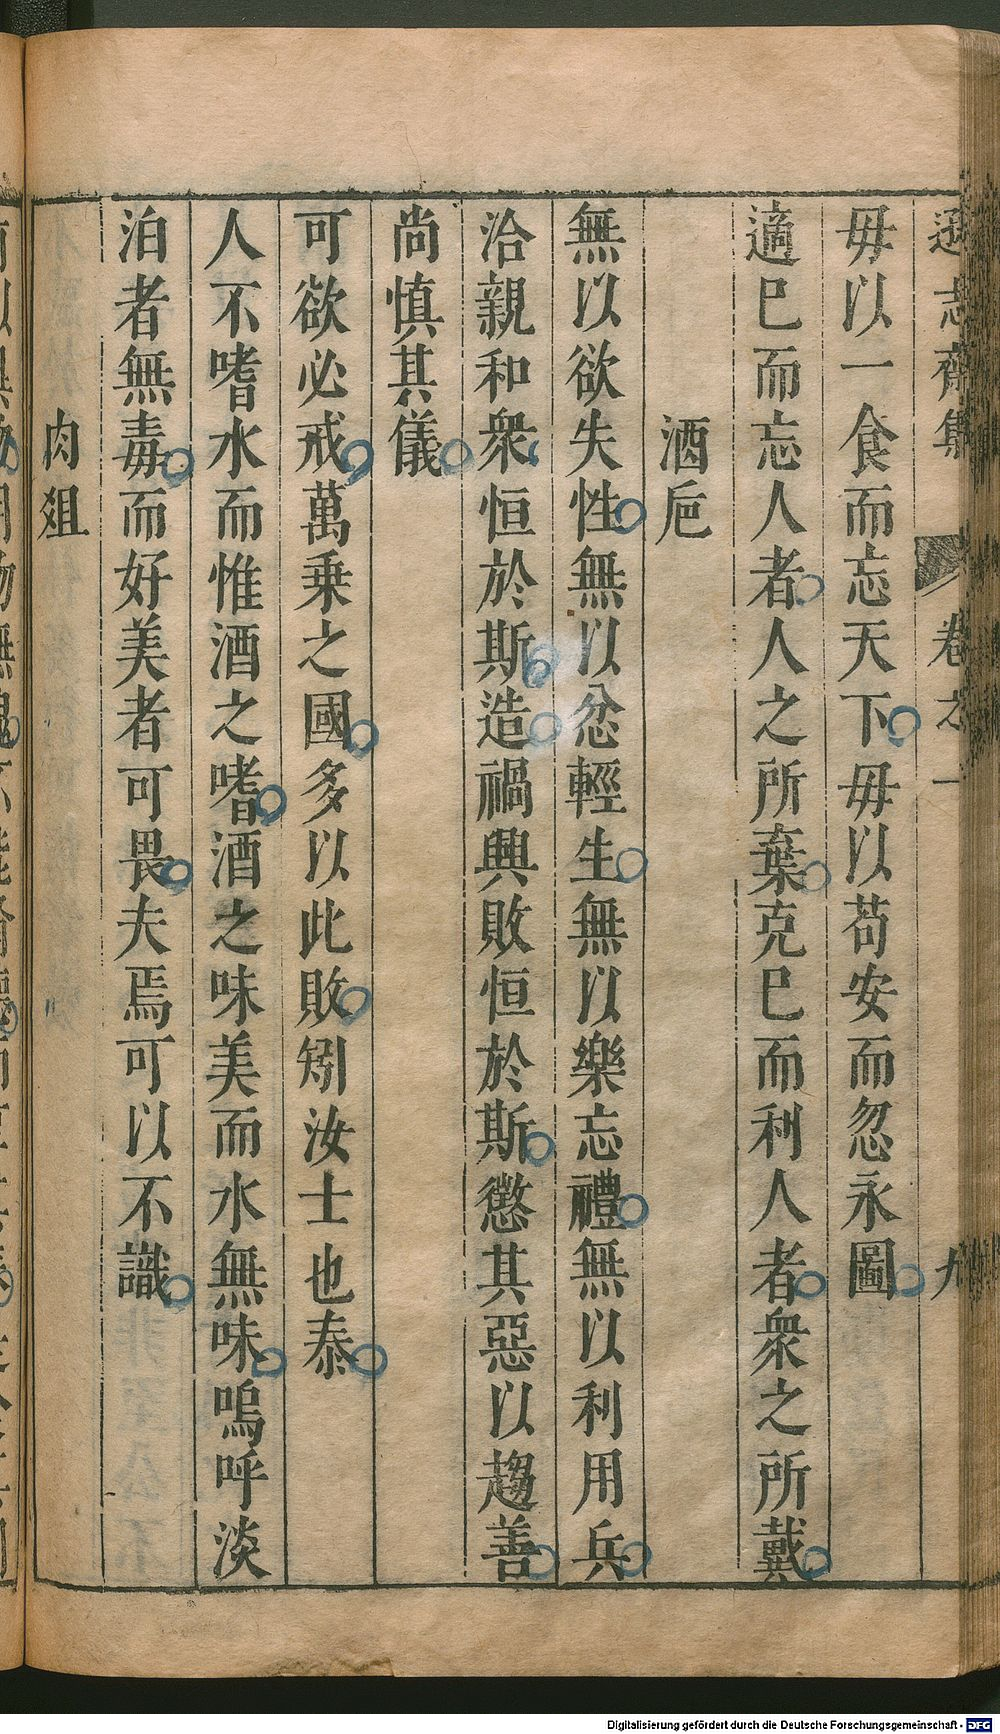 遜志齋集 卷之一 九
毋以一食而忘天下毋以苟安而忽永圖
適已而忘人者人之所棄克已而利人者衆之所戴
酒巵
無以欲失性無以忿輕生無以樂忘禮無以利用兵
洽親和衆恒於斯造禍興敗恒於斯懲其惡以趨善
尚慎其儀
可欲必戒萬乗之國多以此敗矧汝士也泰
人不嗜水而惟酒之嗜酒之味美而水無味嗚呼淡
泊者無毒而好美者可畏夫焉可以不識
肉俎
Digitalisierung gefördert durch die Deutsche Forschungsgemeinschaft - DFG